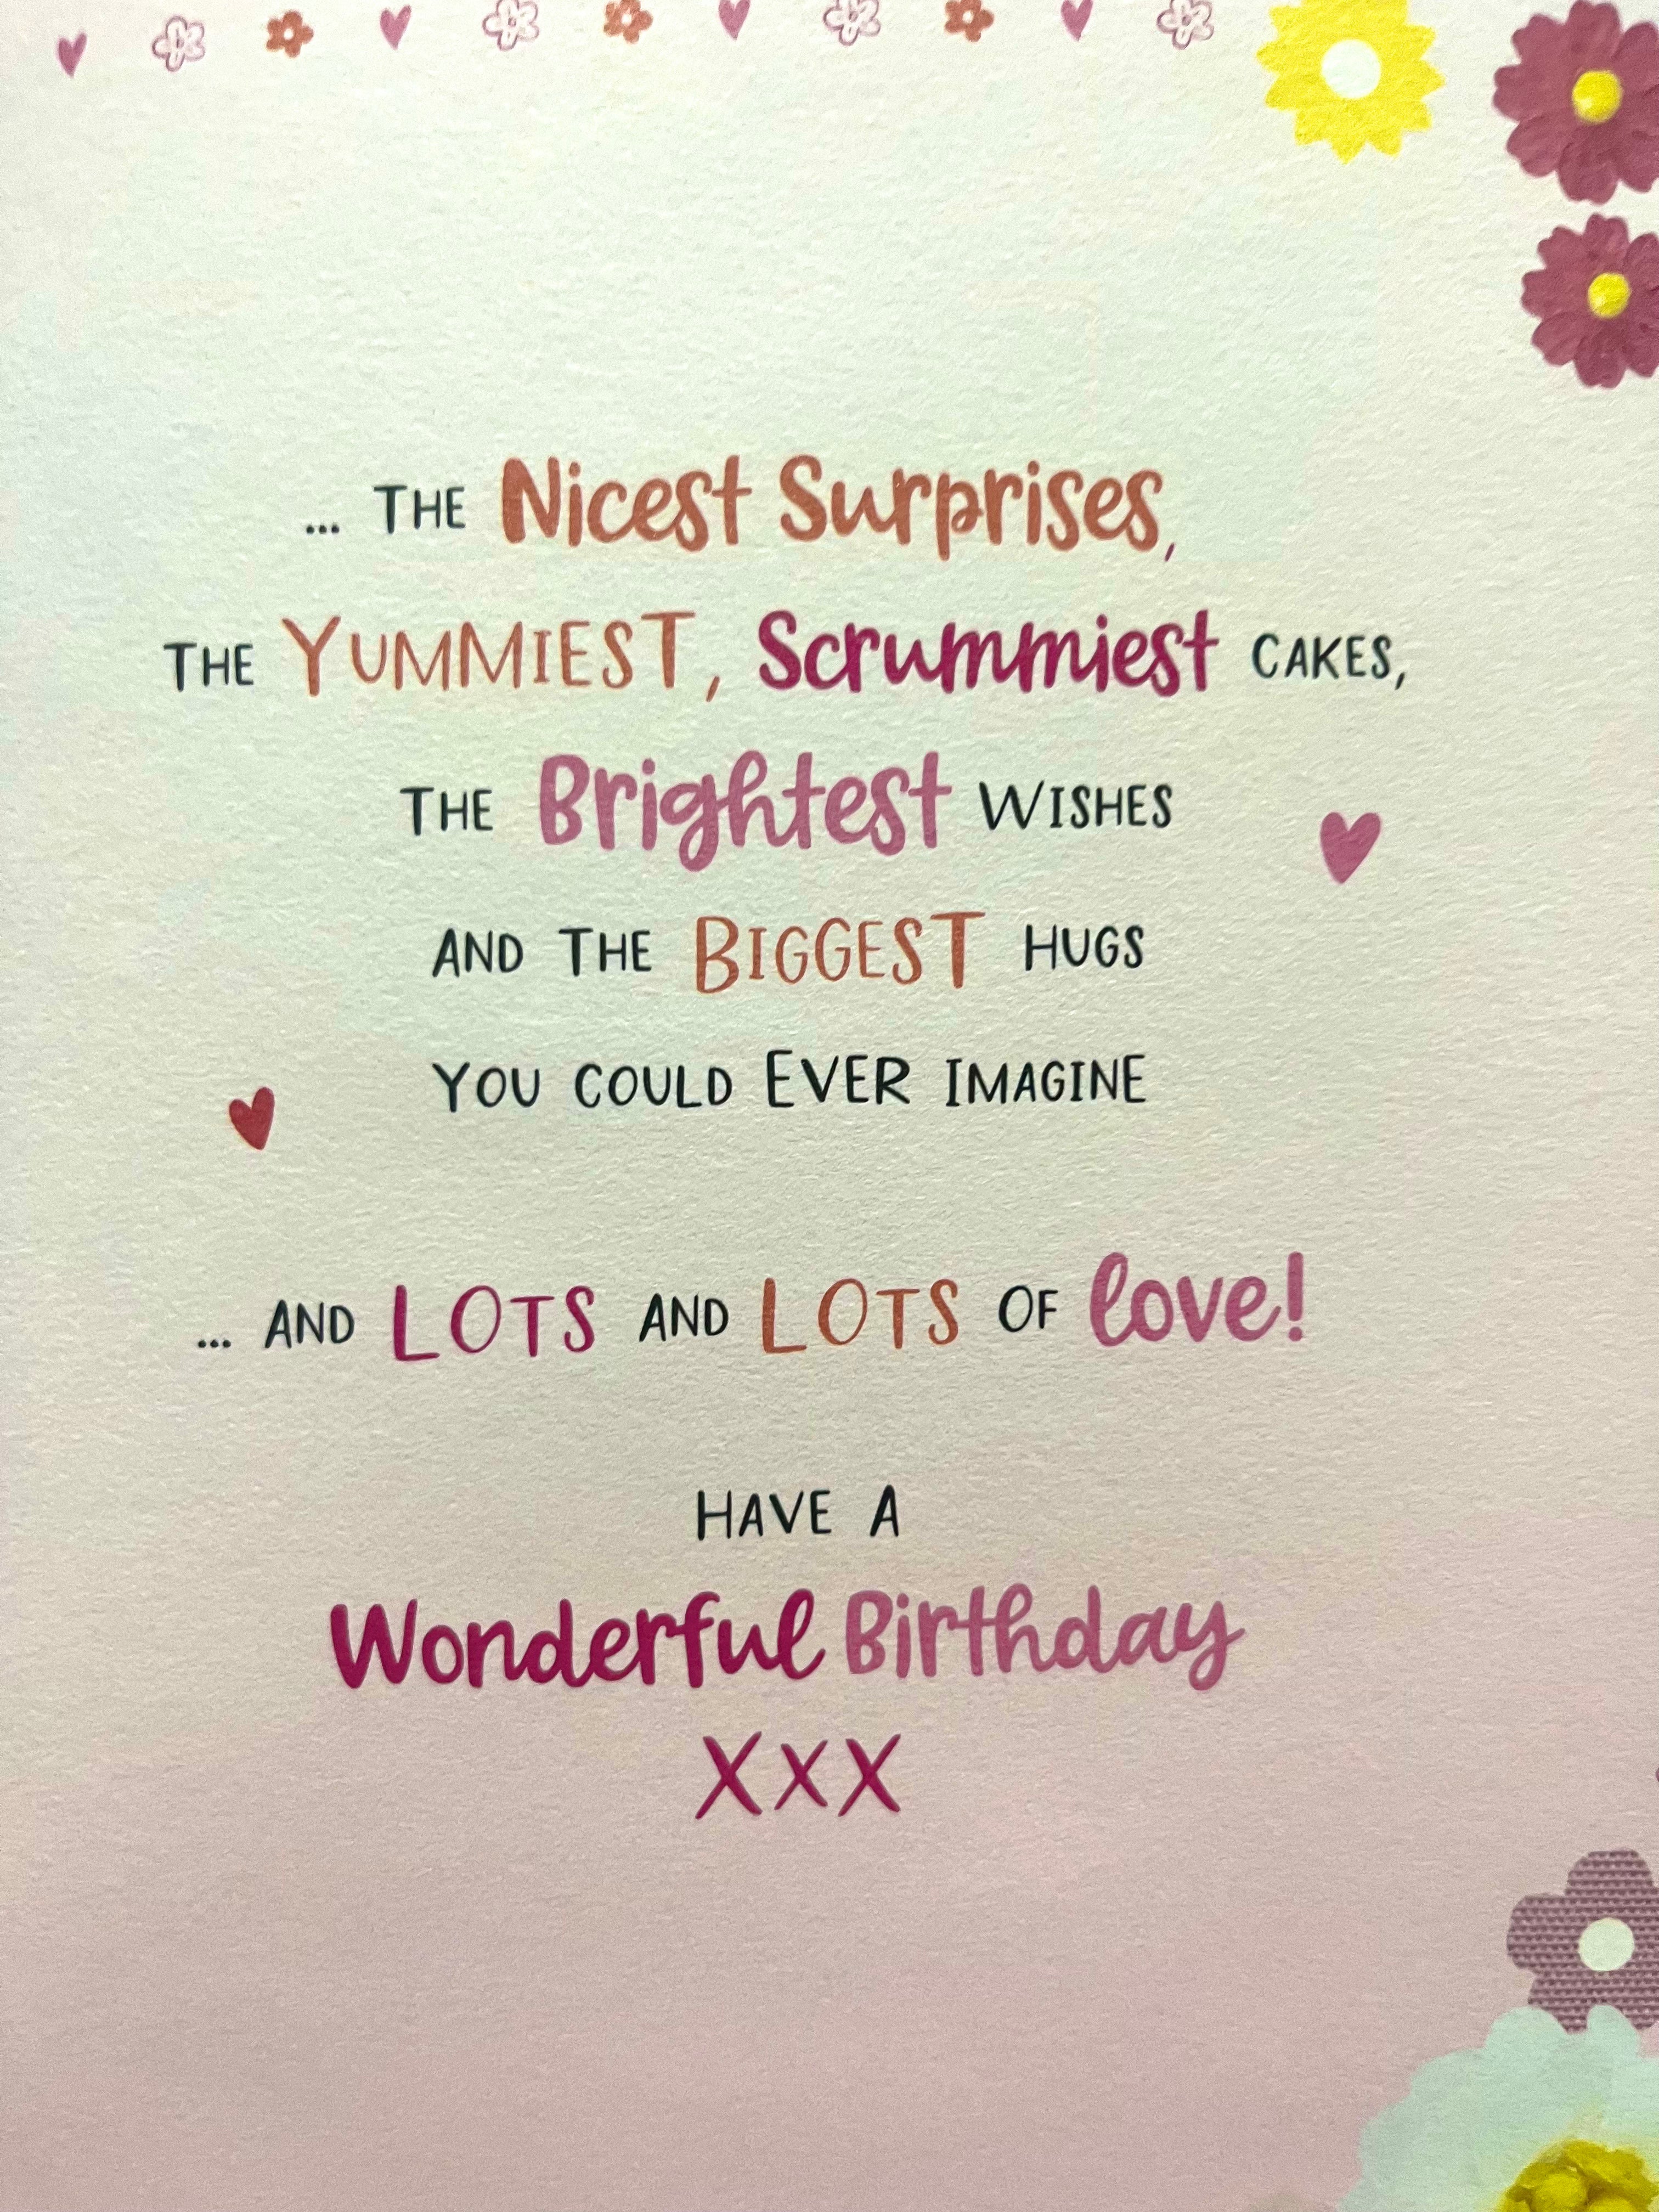 ... THE Nicest Surprises,
THE YUMMIEST, Scrummiest CAKES,
THE Brightest WISHES
AND THE BIGGEST HUGS
YOU COULD EVER IMAGINE
... AND LOTS AND LOTS OF love!
HAVE A
Wonderful Birthday
XxX